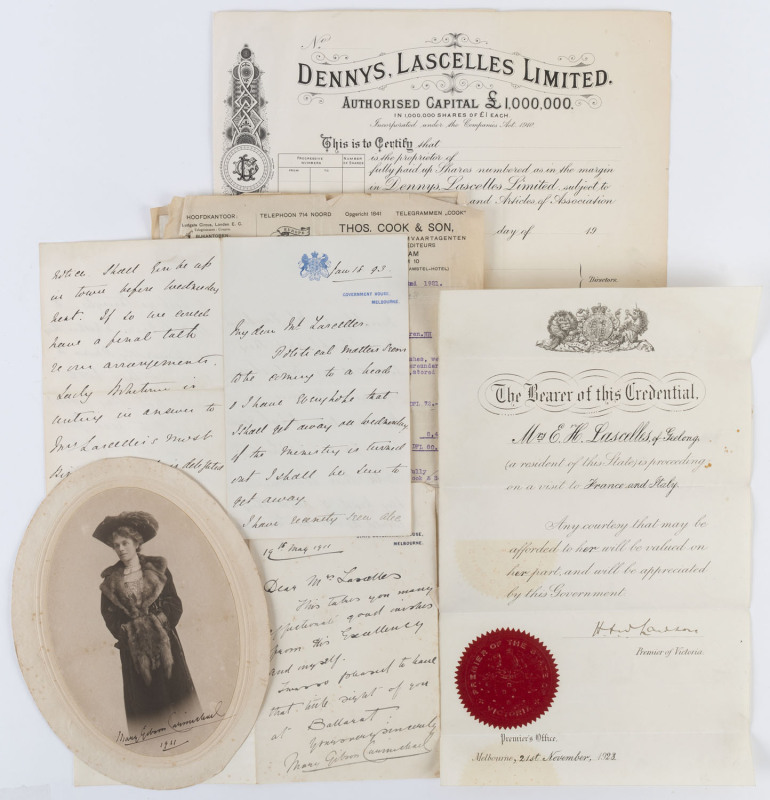 No
DENNYS, LASCELLES LIMITED.
AUTHORISED CAPITAL £1,000,000.
IN 1,000,000 SHARES OF £1 EACH.
Incorporated under the Companies Act 1910
This is to Certify that
PROGRESSIVE NUMBERS
NUMBER OF SHARES
FROM
TO
is the proprietor of
fully paid up Shares numbered as in the margin
in Dennys, Lascelles Limited, subject to
and Articles of Association
day of 19
Directors.
HOOFDKANTOOR
TELEPHOON 714 NOORD
Opgericht 1841
TELEGRAMMEN "COOK"
Ludgate Circus, London E. C.
THOS. COOK & SON,
notice. I shall be up
in town before Wednesday
next. If so we could
have a final talk
over arrangements.
Lady
writing in answer to
Mrs Lascelles's most
Jan 15 93.
GOVERNMENT HOUSE,
MELBOURNE.
My dear Mr Lascelles.
Political matters seem
to be coming to a head
I have every hope that
I shall get away on Wednesday
if the Ministry is turned
out I shall be sure to
get away.
I have recently seen
MELBOURNE.
19th May 1911
Dear Mrs Lascelles
This takes you many
affectionate good wishes
from His Excellency
and myself.
I was so pleased to have
that little sight of you
at Ballarat
Yours very sincerely
Mary Gibson Carmichael
Mary Gibson Carmichael
1911
The Bearer of this Credential,
Mrs E. H. Lascelles, of Geelong
(a resident of this State) is proceeding
on a visit to France and Italy.
Any courtesy that may be
afforded to her will be valued on
her part, and will be appreciated
by this Government.
Premier of Victoria.
PREMIER OF THE STATE
VICTORIA
Premier's Office.
Melbourne, 21st November, 1923.